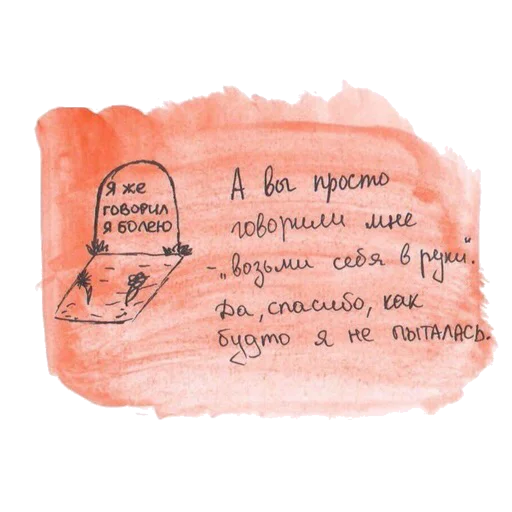 Я же
говорил
я болею
А вы просто
говорили мне
- „возьми себя в руки".
Да, спасибо, как
будто я не пыталась.